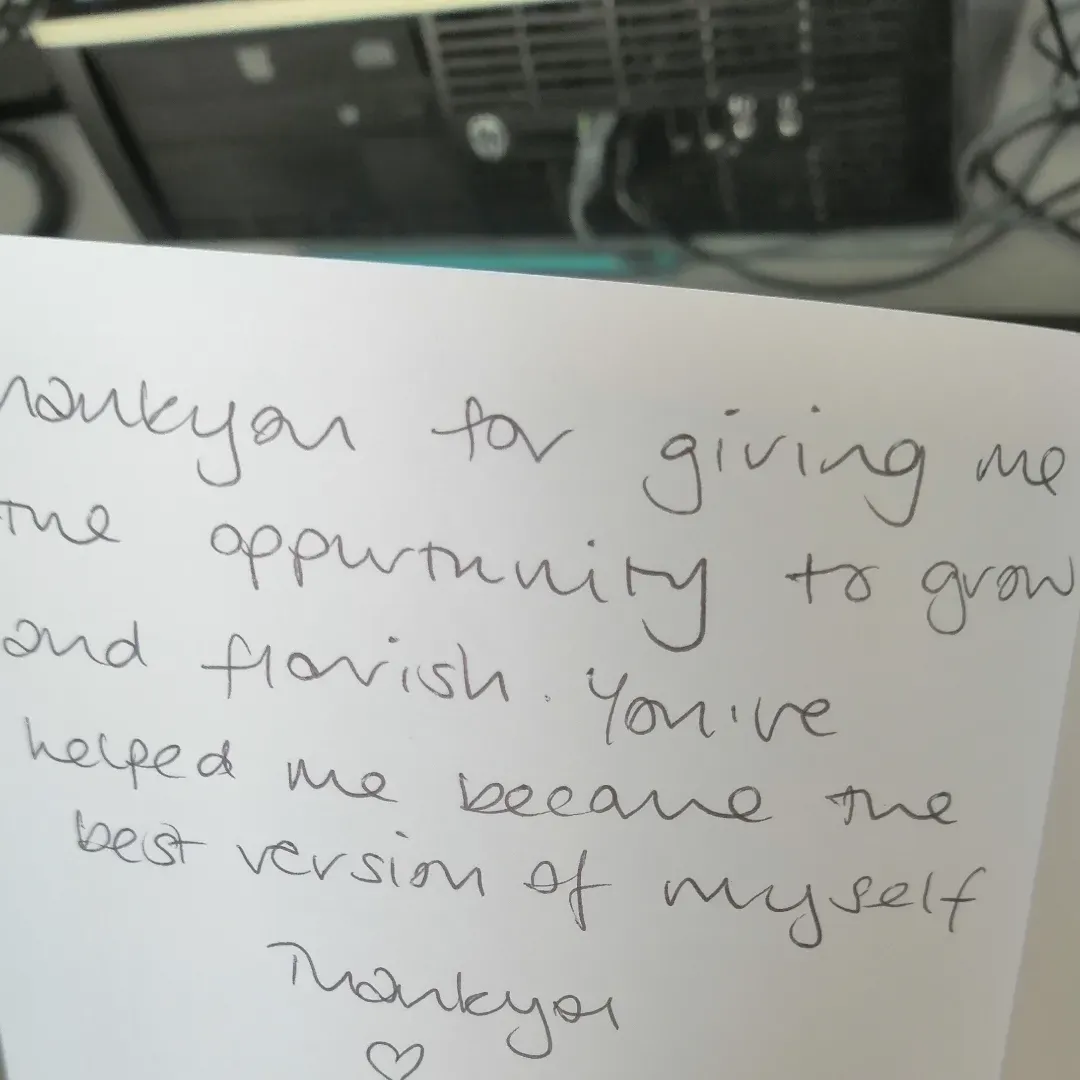 hankyou for giving me
the oppurtunity to grow
and flourish. You've
helped me became the
best version of myself
Thankyou